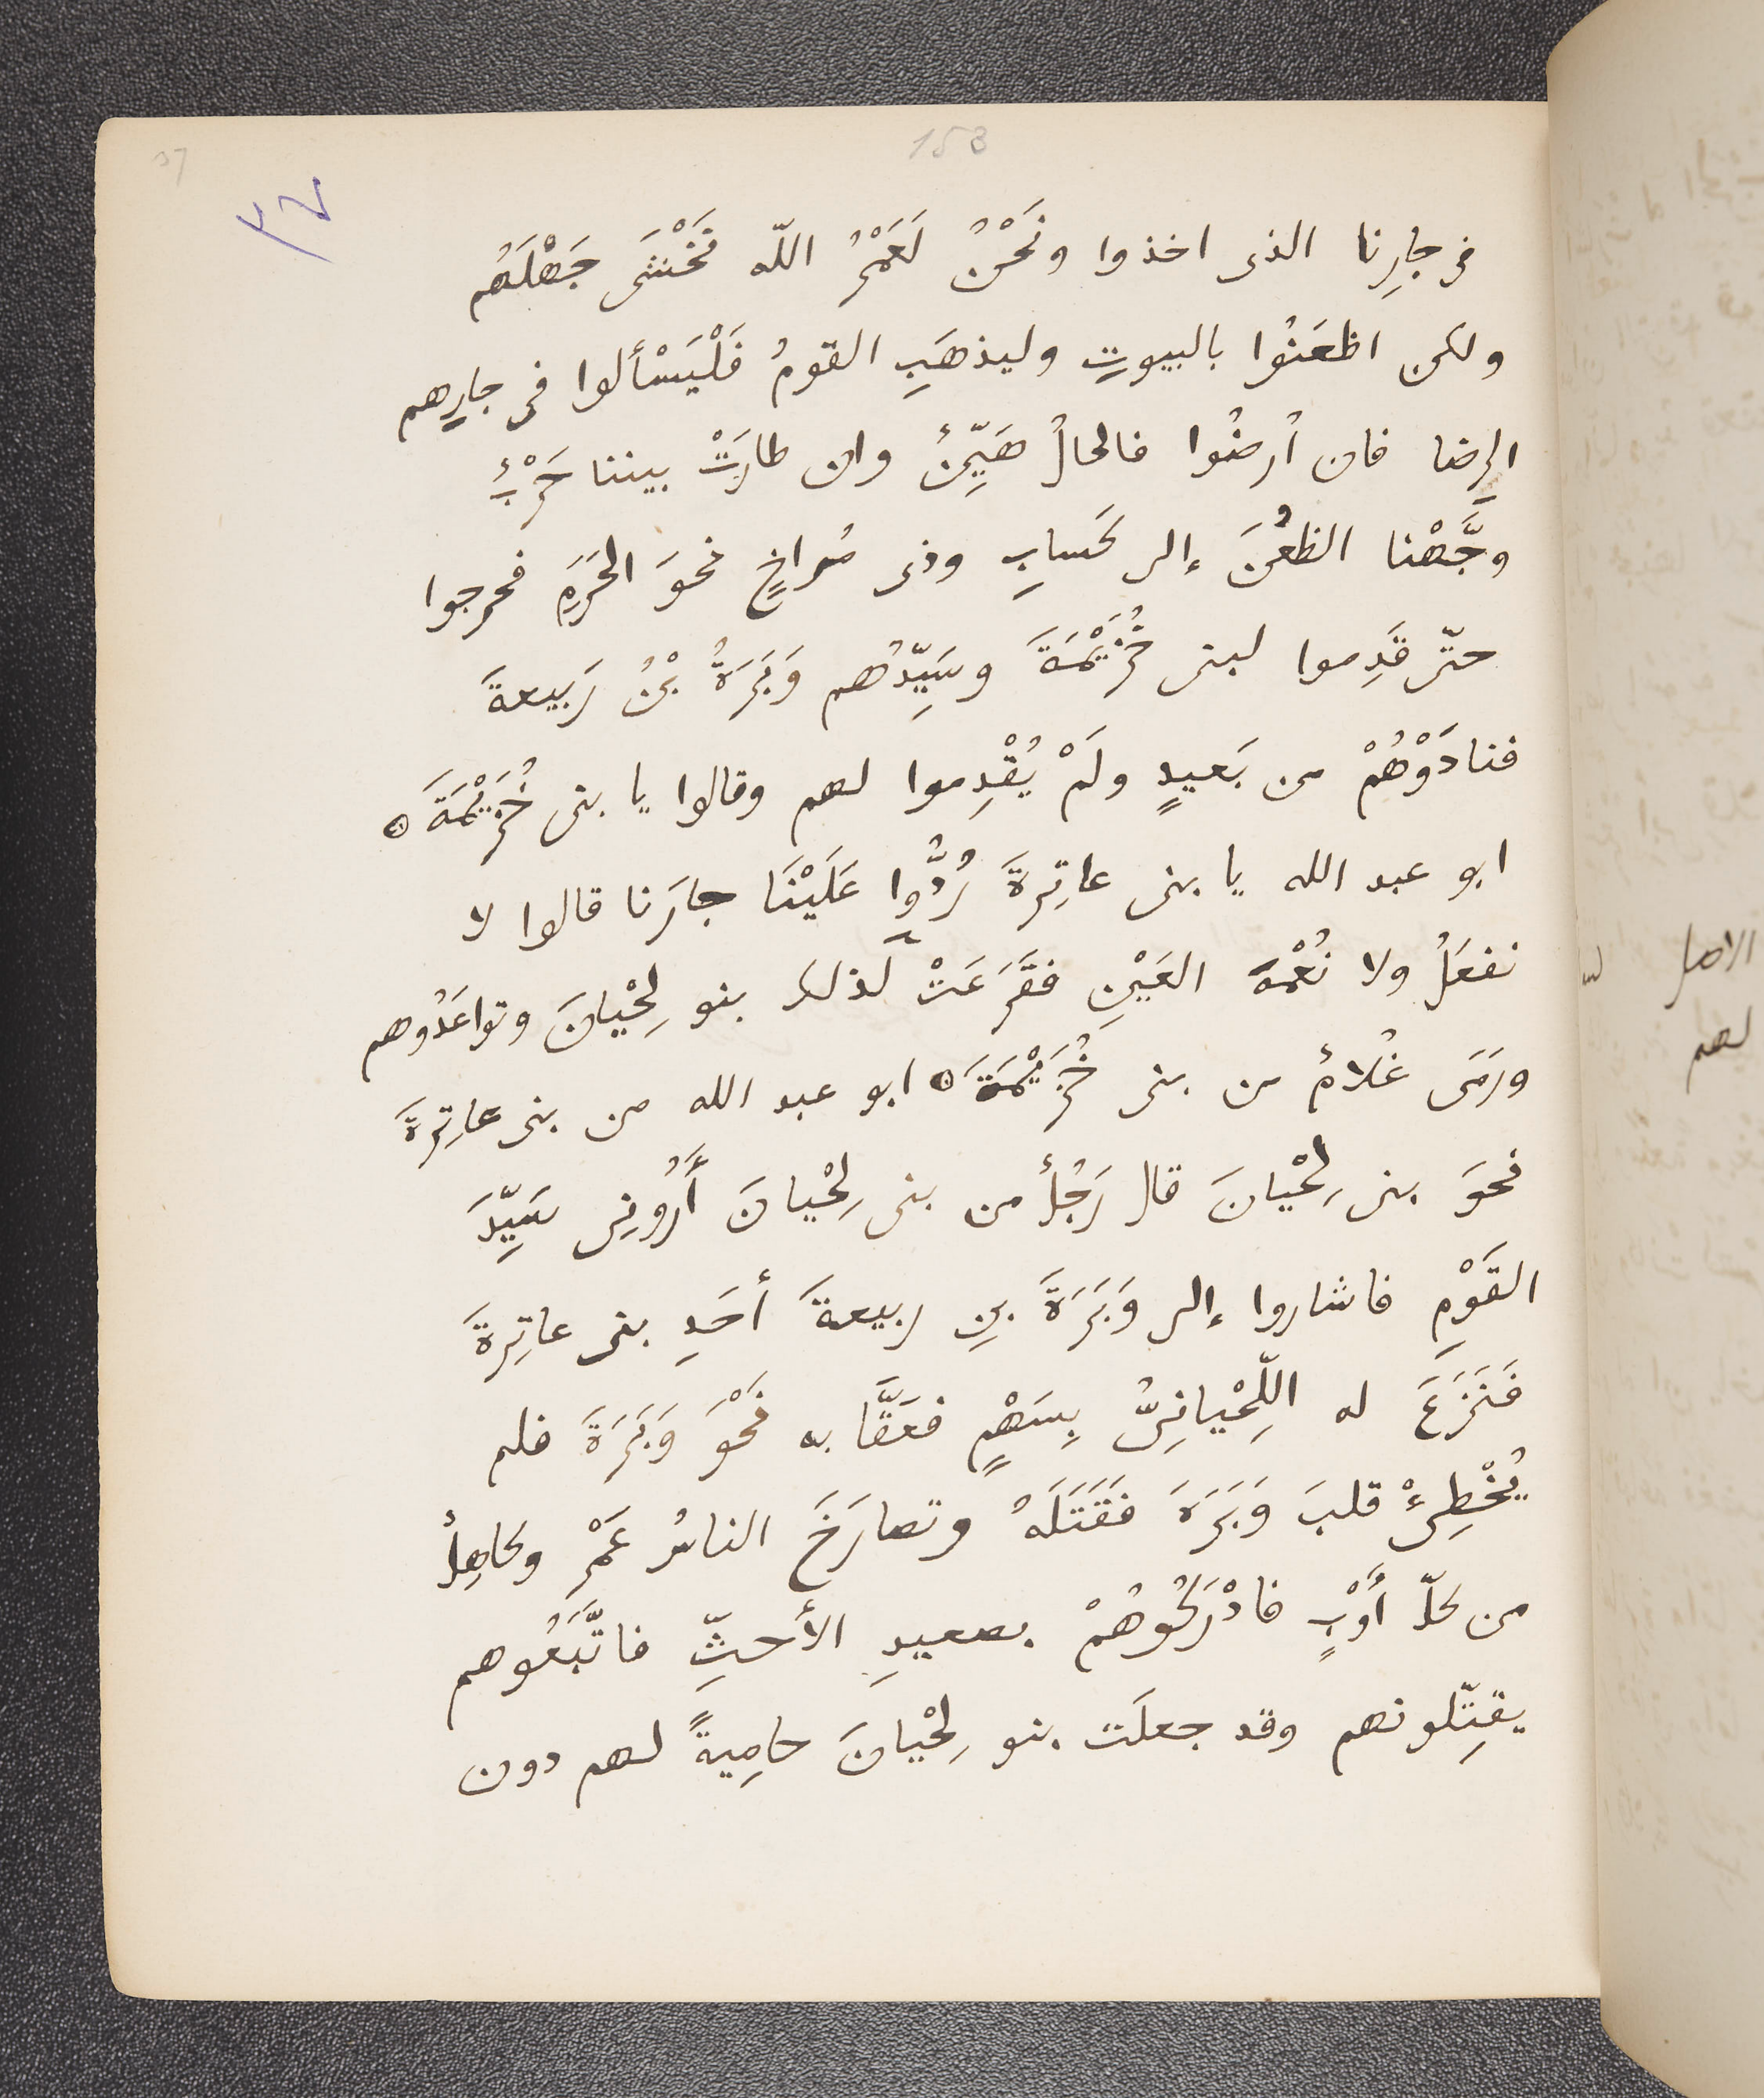 153
37
٣٧
فى جارِنا الذى اخذوا ونَحْنُ لَعَمْرُ اللّه نَخْشَى جَهْلَهُم
ولكن اظعَنُوا بالبيوتِ وليذهَبِ القومُ فَلْيَسْألوا فى جارِهم
الرِضا فان أُرضُوا فالحالُ هَيِّنٌ وان طارَتْ بيننا حَرْبٌ
وجَّهْنا الظُعْنَ إلى كَسابِ وذى مُراخٍ نحوَ الحَرَمِ فخرجوا
حتّى قَدِموا لبنى خُزَيْمَةَ وسَيِّدُهم وَبَرَةُ بْنُ رَبيعةَ
فنادَوْهُمْ من بَعيدٍ ولَمْ يُقْدِموا لهم وقالوا يا بنى خُزَيْمَةَ ۞
ابو عبد الله يا بنى عاتِرةَ رُدُّوا عَلَيْنَا جارَنا قالوا لا
نفعَلُ ولا نُعْمَةَ العَيْنِ فقَرَعَتْ لذلك بنو لِحْيانَ وتواعَدُوهم
ورَمَى غُلامٌ من بنى خُزَيْمَةَ ۞ ابو عبد الله من بنى عاتِرةَ
نحوَ بنى لِحْيانَ قال رَجُلٌ من بنى لِحْيانَ أَرُونِى سَيِّدَ
القَوْمِ فاشاروا إلى وَبَرَةَ بنِ ربيعةَ أحَدِ بنى عاتِرةَ
فَنَزَعَ له اللِّحْيانِىُّ بِسَهْمٍ فعَقَّا به نَحْوَ وَبَرَةَ فلم
يُخْطِئْ قلبَ وَبَرَةَ فقَتَلَهُ وتصارَخَ الناسُ عَمْرٌ وكاهِلٌ
من كلّ أَوْبٍ فادْرَكُوهُمْ بصعيدِ الأحثِّ فاتَّبَعُوهم
يقتِّلونهم وقد جعلَت بنو لِحْيانَ حامِيةً لهم دون
الاصل
لهم